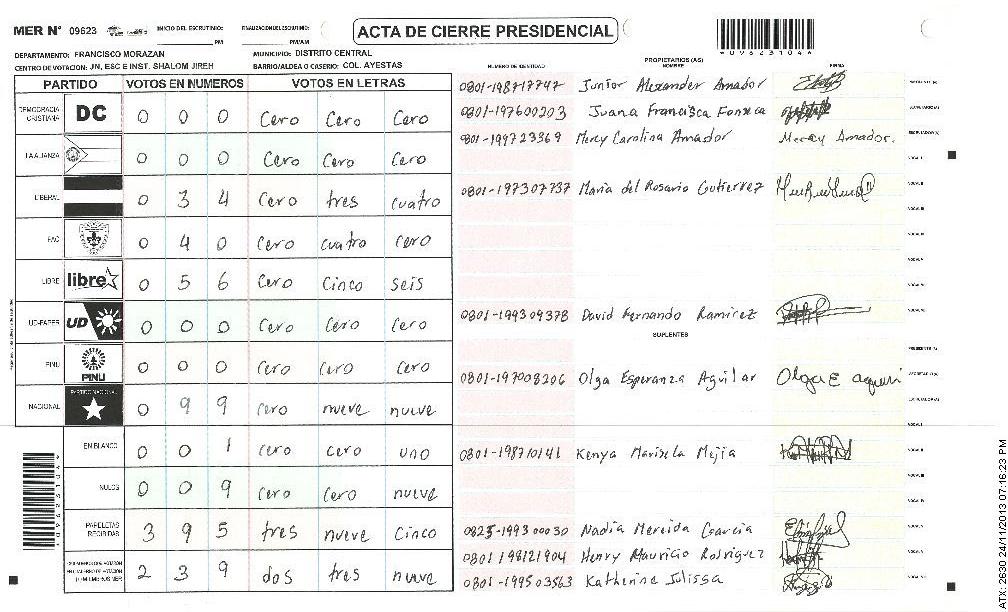 MER Nº 09623 INICIO DEL ESCRUTINIO: PM FINALIZACION DEL ESCRUTINIO: PM/AM
ACTA DE CIERRE PRESIDENCIAL
*09623104*
DEPARTAMENTO: FRANCISCO MORAZAN MUNICIPIO: DISTRITO CENTRAL
CENTRO DE VOTACION: JN, ESC E INST. SHALOM JIREH BARRIO/ALDEA O CASERIO: COL. AYESTAS
PARTIDO VOTOS EN NUMEROS VOTOS EN LETRAS
DEMOCRACIA CRISTIANA DC 0 0 0 Cero Cero Cero
LA ALIANZA 0 0 0 Cero Cero Cero
LIBERAL 0 3 4 Cero tres cuatro
FAC 0 4 0 Cero cuatro cero
LIBRE libre 0 5 6 Cero Cinco seis
UD-FAPER UD 0 0 0 Cero Cero Cero
PINU PINU 0 0 0 Cero Cero Cero
NACIONAL PARTIDO NACIONAL 0 9 9 cero nueve nueve
EN BLANCO 0 0 1 cero cero uno
NULOS 0 0 9 cero Cero nueve
PAPELETAS RECIBIDAS 3 9 5 tres nueve Cinco
2 3 9 dos tres nueve
PROPIETARIOS (AS)
NUMERO DE IDENTIDAD NOMBRE FIRMA
0801-198717747 Junior Alexander Amador
0801-197600203 Juana Francisca Fonseca
0801-199723369 Mercy Carolina Amador Mercy Amador.
0801-197307737 Maria del Rosario Gutierrez
0801-199309378 David Fernando Ramirez
SUPLENTES
0801-197008206 Olga Esperanza Aguilar Olga E aguilar
0801-198710141 Kenya Marisela Mejia
0825-199300030 Nadia Mereida Garcia
0801198121904 Henry Mauricio Rodriguez
0801-199503563 Katherine Julissa
ATX: 2930 24/11/2013 07:16:23 PM